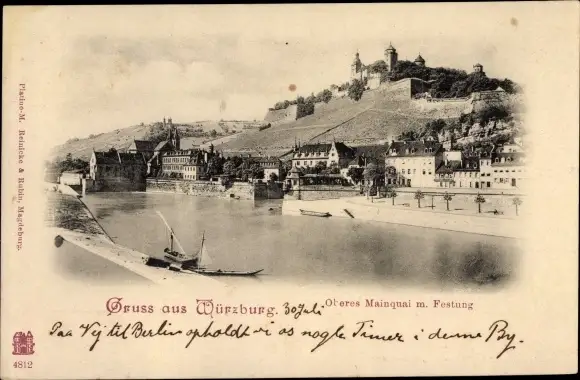 Platino-M. Reinicke & Rubin, Magdeburg.
Gruss aus Würzburg. 30 Juli Oberes Mainquai m. Festung
Paa Vej til Berlin opholdt vi os nogle Timer i denne By.
4812